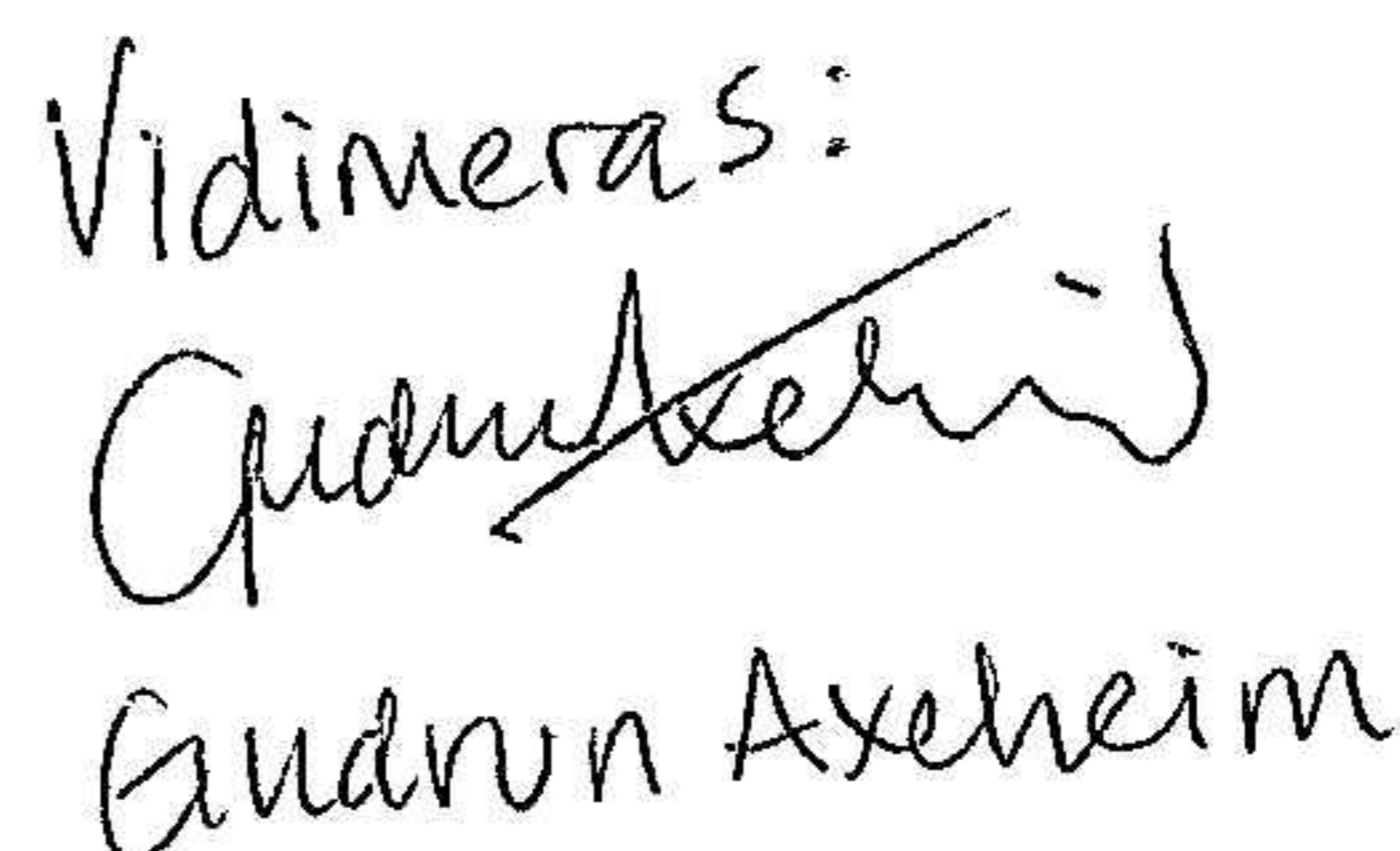 Vidimeras:
Gudrun Axeheim
Gudrun Axeheim